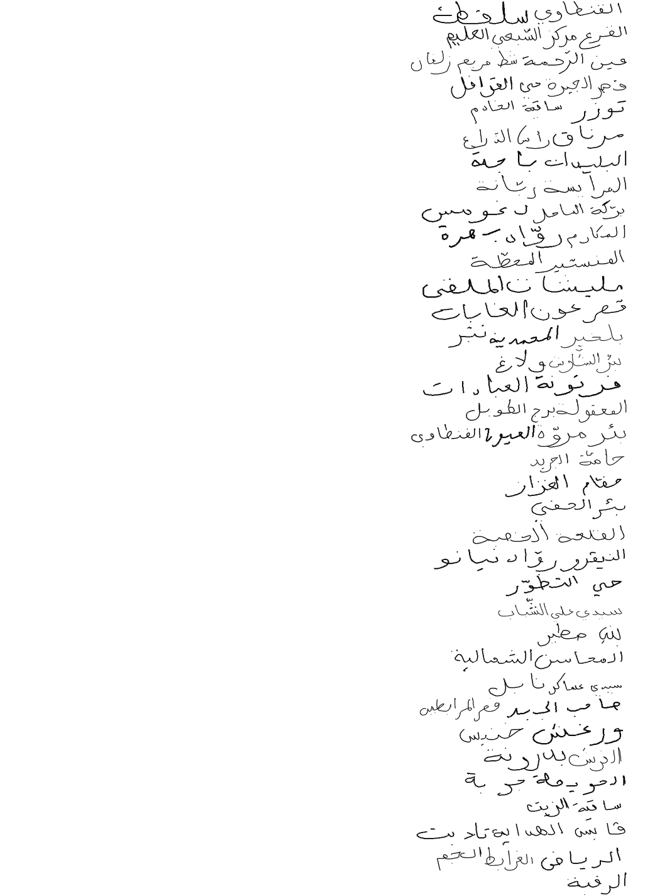 الفنطاوي سلقطة
الفريع مركز الشيحي العليم
عين الرحمة شط مريم زلفان
فج الجيرة حي القوافل
توزر ساقية الخادم
مرناق راس الذراع
البليدات باجة
المرايسة رتانة
بركة الساحل نحوميس
المكارم روّاد بهرة
المنستير المحطّة
مليشات الملفى
قصر عون الغابات
بلخير المحمدية نتر
بئر الشارش ولاغ
فرتونة العبادات
المعقولة برج الطويل
بئر مروّة الفنطاوي
حامّة الجريد
مقام الغزاز
بئر الحفي
القلعة الخصبة
النيقرو روّاد نيانو
حي التطوّر
سيدي علي الشّباب
بني مطير
المحاسن الشمالية
سيدي عساكر نابل
صاحب الجبل قصر المرابطين
ورغش خنيس
العرش بلارونة
الحويصلة جربة
ساقية الزيت
قابس الهداية تاديت
الرياض الغرابط النجم
الرقبة